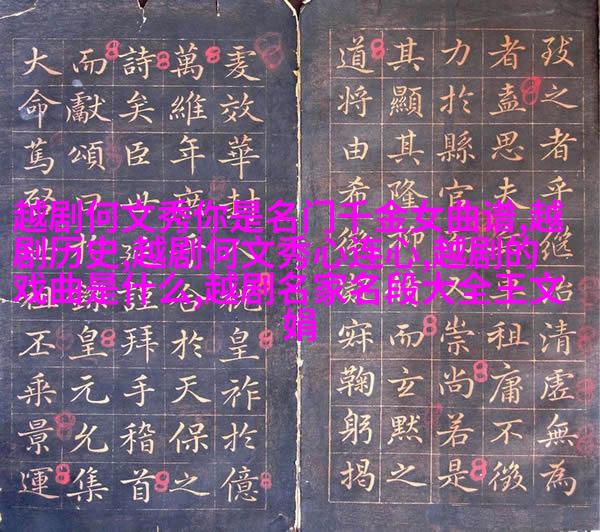 越剧何文秀你是名门千金女曲谱,越
剧历史,越剧何文秀心连心,越剧的
戏曲是什么,越剧名家名段大全王文
娟
之者乎繼清虛無為
者盍思夫祖庸不徵
力於縣官又崇尚若是
其顯其隆而玄默之
道將由希鞠躬揭
效華封祝皇祚於億
萬維年合於天保之
詩矣臣世拜手稽首
而獻頌曰皇元允集
大命篤丕乘景運